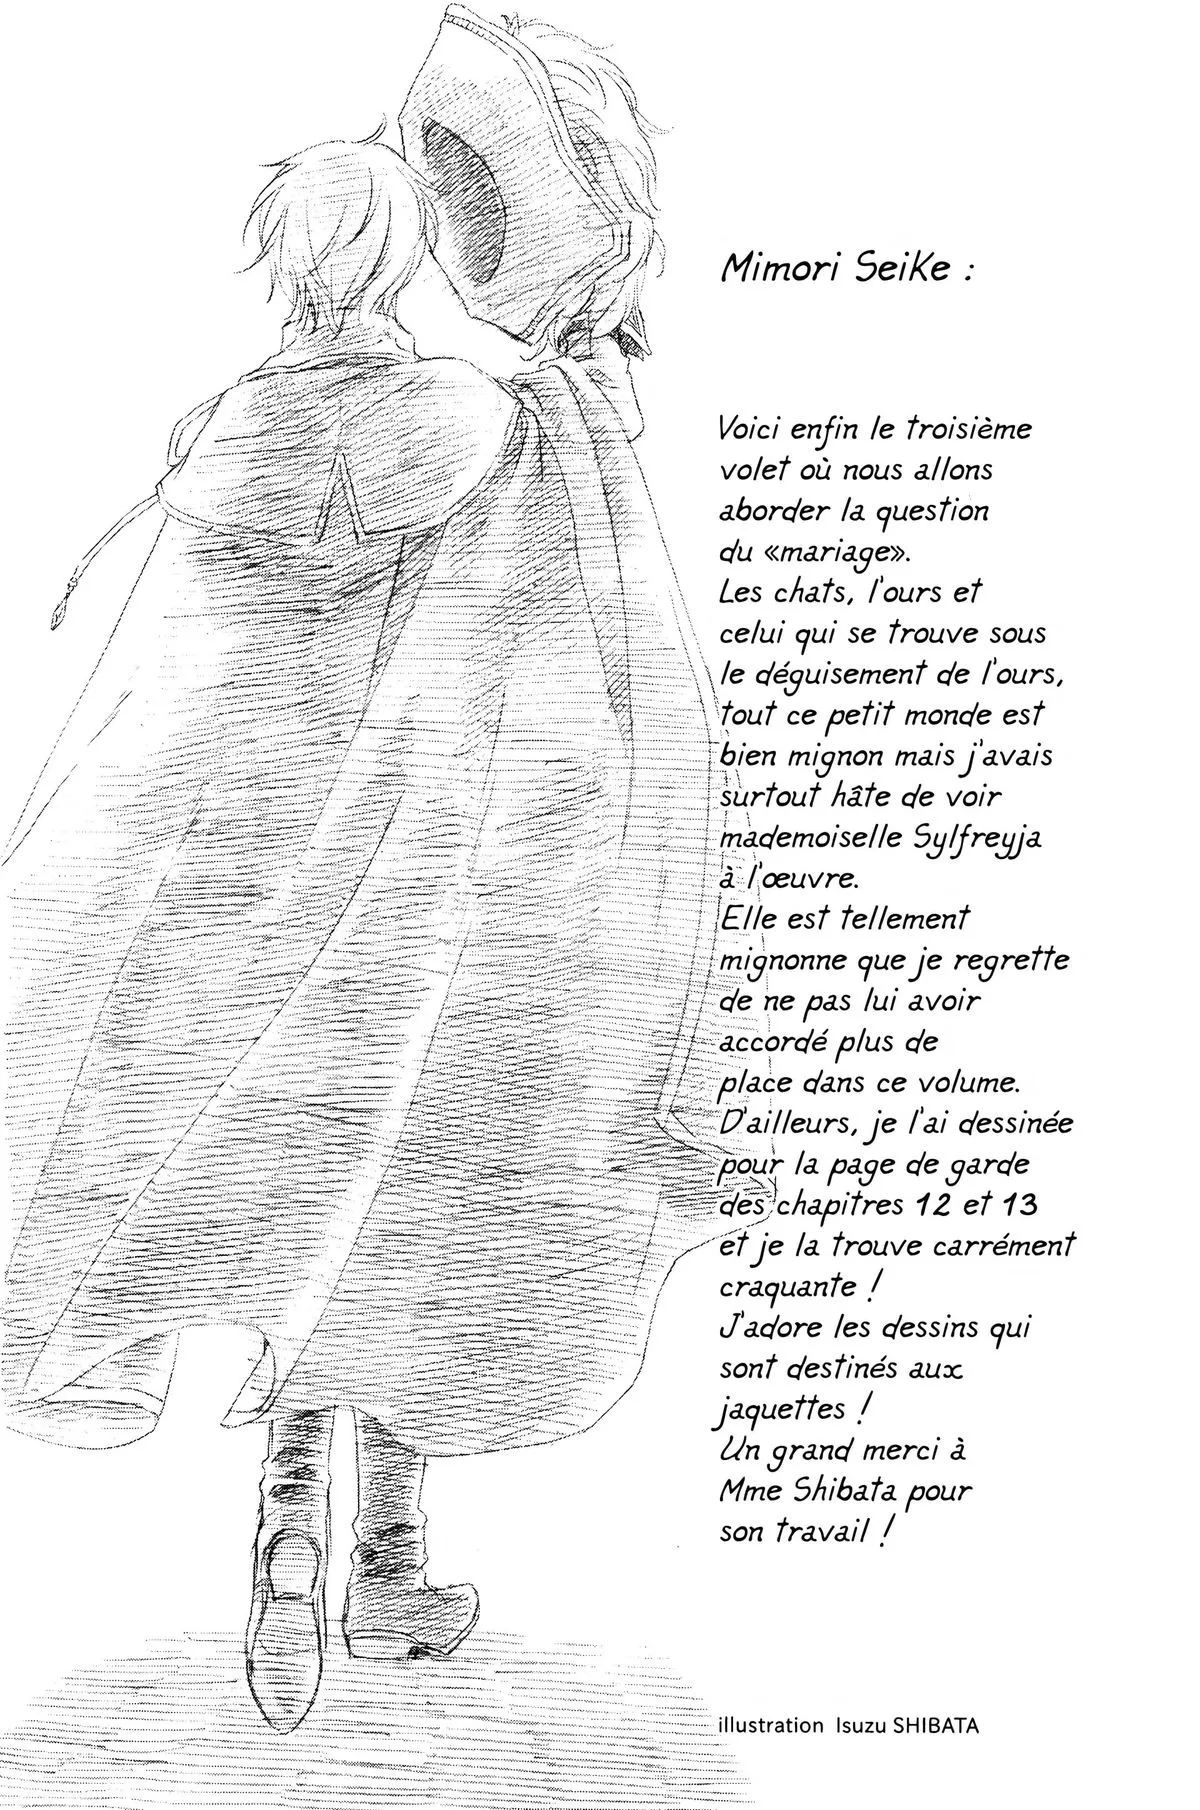 Mimori Seike :
Voici enfin le troisième
volet où nous allons
aborder la question
du «mariage».
Les chats, l'ours et
celui qui se trouve sous
le déguisement de l'ours,
tout ce petit monde est
bien mignon mais j'avais
surtout hâte de voir
mademoiselle Sylfreyja
à l'œuvre.
Elle est tellement
mignonne que je regrette
de ne pas lui avoir
accordé plus de
place dans ce volume.
D'ailleurs, je l'ai dessinée
pour la page de garde
des chapitres 12 et 13
et je la trouve carrément
craquante !
J'adore les dessins qui
sont destinés aux
jaquettes !
Un grand merci à
Mme Shibata pour
son travail !
illustration Isuzu SHIBATA